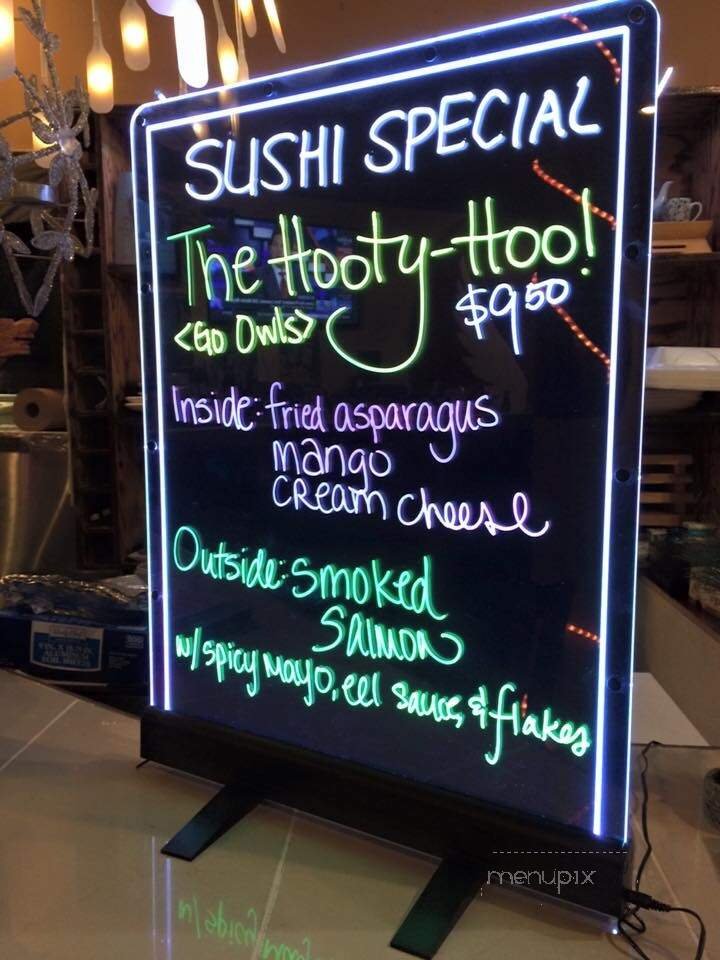 SUSHI SPECIAL
The Hooty-Hoo!
<Go Owls> $9.50
Inside: fried asparagus
mango
cream cheese
Outside: Smoked
Salmon
w/ spicy mayo, eel sauce, & flakes
menupix